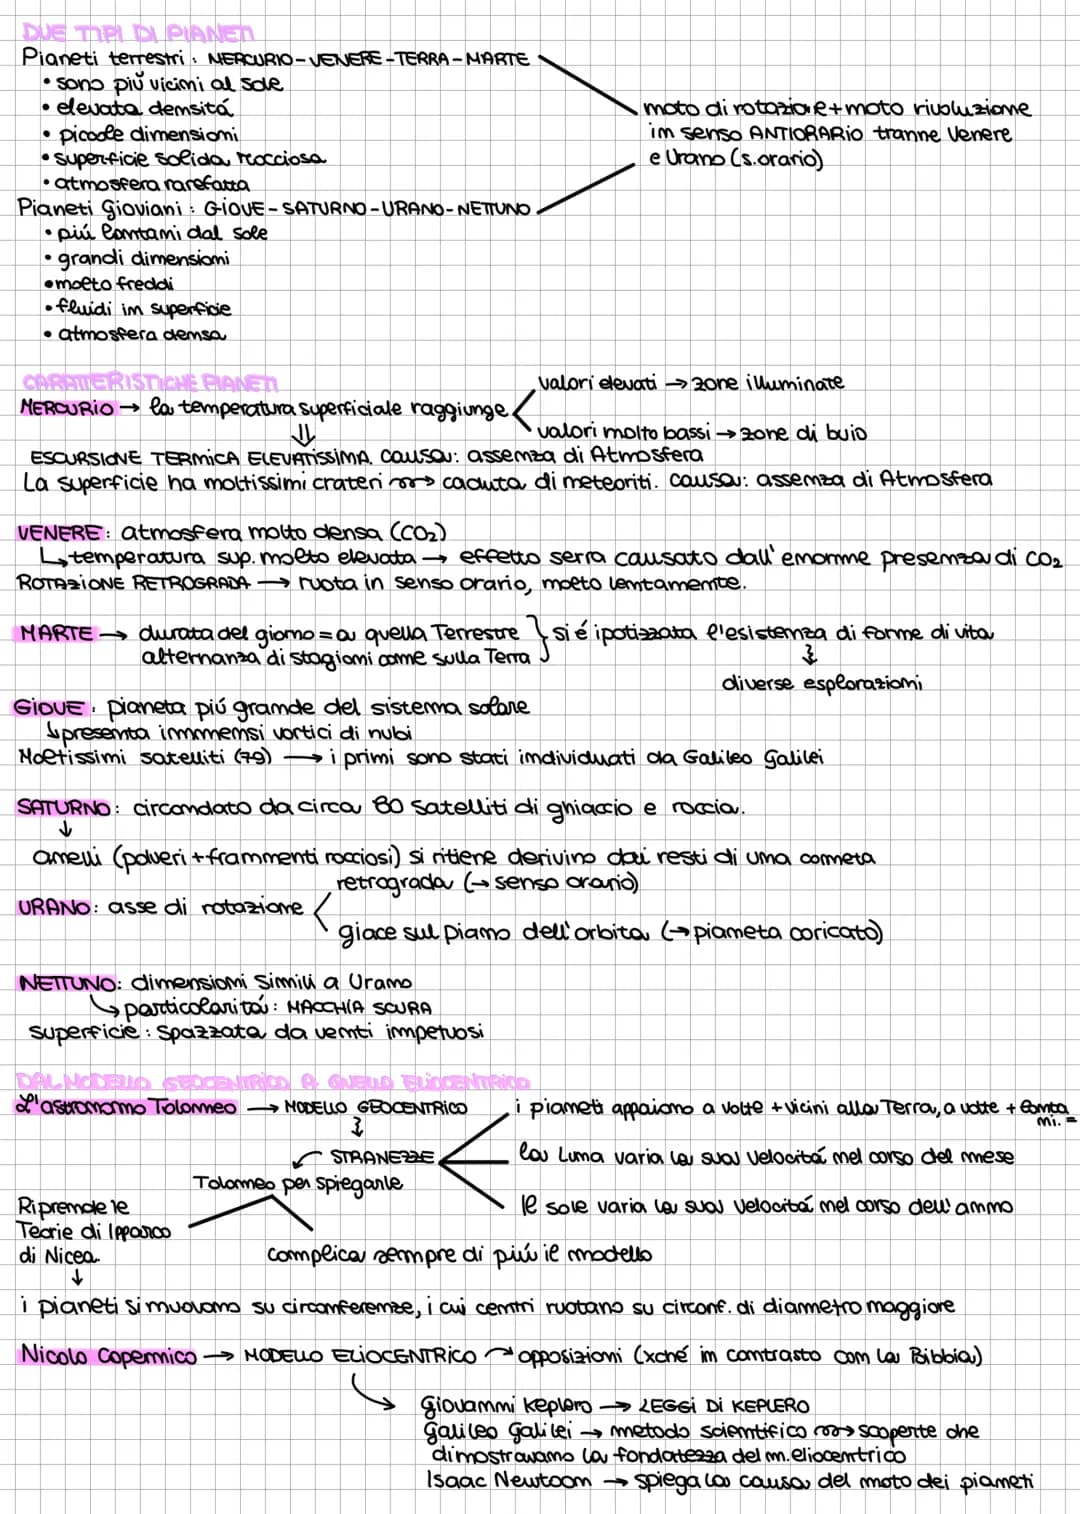 DUE TIPI DI PIANETI
Pianeti terrestri : MERCURIO-VENERE-TERRA-MARTE
• sono più vicini al sole
• elevata densitá
• piccole dimensioni
• superficie solida, rocciosa
• atmosfera rarefatta
moto di rotazione+moto rivoluzione
in senso ANTIORARIO tranne Venere
e Urano (s.orario)
Pianeti Gioviani : GIOVE-SATURNO-URANO-NETTUNO
• piú lontani dal sole
• grandi dimensioni
• molto freddi
• fluidi in superficie
• atmosfera densa
CARATTERISTICHE PIANETI
MERCURIO → la temperatura superficiale raggiunge
valori elevati → zone illuminate
valori molto bassi → zone di buio
⇓
ESCURSIONE TERMICA ELEVATISSIMA. causa: assenza di Atmosfera
La superficie ha moltissimi crateri → caduta di meteoriti. causa: assenza di Atmosfera
VENERE: atmosfera molto densa (CO2)
↳ temperatura sup. molto elevata → effetto serra causato dall'enorme presenza di CO2
ROTAZIONE RETROGRADA → ruota in senso orario, molto lentamente.
MARTE → durata del giorno = a quella Terrestre } si é ipotizzata l'esistenza di forme di vita
alternanza di stagioni come sulla Terra
↓
diverse esplorazioni
GIOVE: pianeta piú grande del sistema solare
↳ presenta immensi vortici di nubi
Moltissimi satelliti (79) → i primi sono stati individuati da Galileo Galilei
SATURNO: circondato da circa 80 satelliti di ghiaccio e roccia.
↓
anelli (polveri+frammenti rocciosi) si ritiene derivino dai resti di una cometa
URANO: asse di rotazione
retrograda (→ senso orario)
giace sul piano dell'orbita (→ pianeta coricato)
NETTUNO: dimensioni simili a Urano
↳ particolaritá: MACCHIA SCURA
superficie : spazzata da venti impetuosi
DAL MODELLO GEOCENTRICO A QUELLO ELIOCENTRICO
L'astronomo Tolomeo → MODELLO GEOCENTRICO
↓
STRANEZZE
i pianeti appaiono a volte + vicini alla Terra, a volte + lonta
ni. =
la Luna varia la sua velocitá nel corso del mese
Il sole varia la sua velocitá nel corso dell'anno
Tolomeo per spiegarle
Riprende le
Teorie di Ipparco
di Nicea
complica sempre di piú il modello
↓
i pianeti si muovono su circonferenze, i cui centri ruotano su circonf. di diametro maggiore
Nicolo Copernico → MODELLO ELIOCENTRICO → opposizioni (xché in contrasto con la Bibbia)
Giovanni keplero → LEGGI DI KEPLERO
Galileo Galilei → metodo scientifico → scoperte che
dimostravano la fondatezza del m. eliocentrico
Isaac Newtoon → spiega la causa del moto dei pianeti